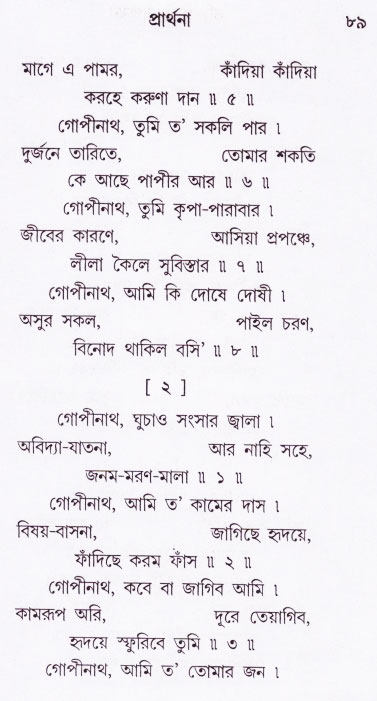 প্রার্থনা ৮৯
মাগে এ পামর, কাঁদিয়া কাঁদিয়া
করহে করুণা দান ॥ ৫ ॥
গোপীনাথ, তুমি ত’ সকলি পার ।
দুর্জনে তারিতে, তোমার শকতি
কে আছে পাপীর আর ॥ ৬ ॥
গোপীনাথ, তুমি কৃপা-পারাবার ।
জীবের কারণে, আসিয়া প্রপঞ্চে,
লীলা কৈলে সুবিস্তার ॥ ৭ ॥
গোপীনাথ, আমি কি দোষে দোষী ।
অসুর সকল, পাইল চরণ,
বিনোদ থাকিল বসি’ ॥ ৮ ॥
[ ২ ]
গোপীনাথ, ঘুচাও সংসার জ্বালা ।
অবিদ্যা-যাতনা, আর নাহি সহে,
জনম-মরণ-মালা ॥ ১ ॥
গোপীনাথ, আমি ত’ কামের দাস ।
বিষয়-বাসনা, জাগিছে হৃদয়ে,
ফাঁদিছে করম ফাঁস ॥ ২ ॥
গোপীনাথ, কবে বা জাগিব আমি ।
কামরূপ অরি, দূরে তেয়াগিব,
হৃদয়ে স্ফুরিবে তুমি ॥ ৩ ॥
গোপীনাথ, আমি ত’ তোমার জন ।